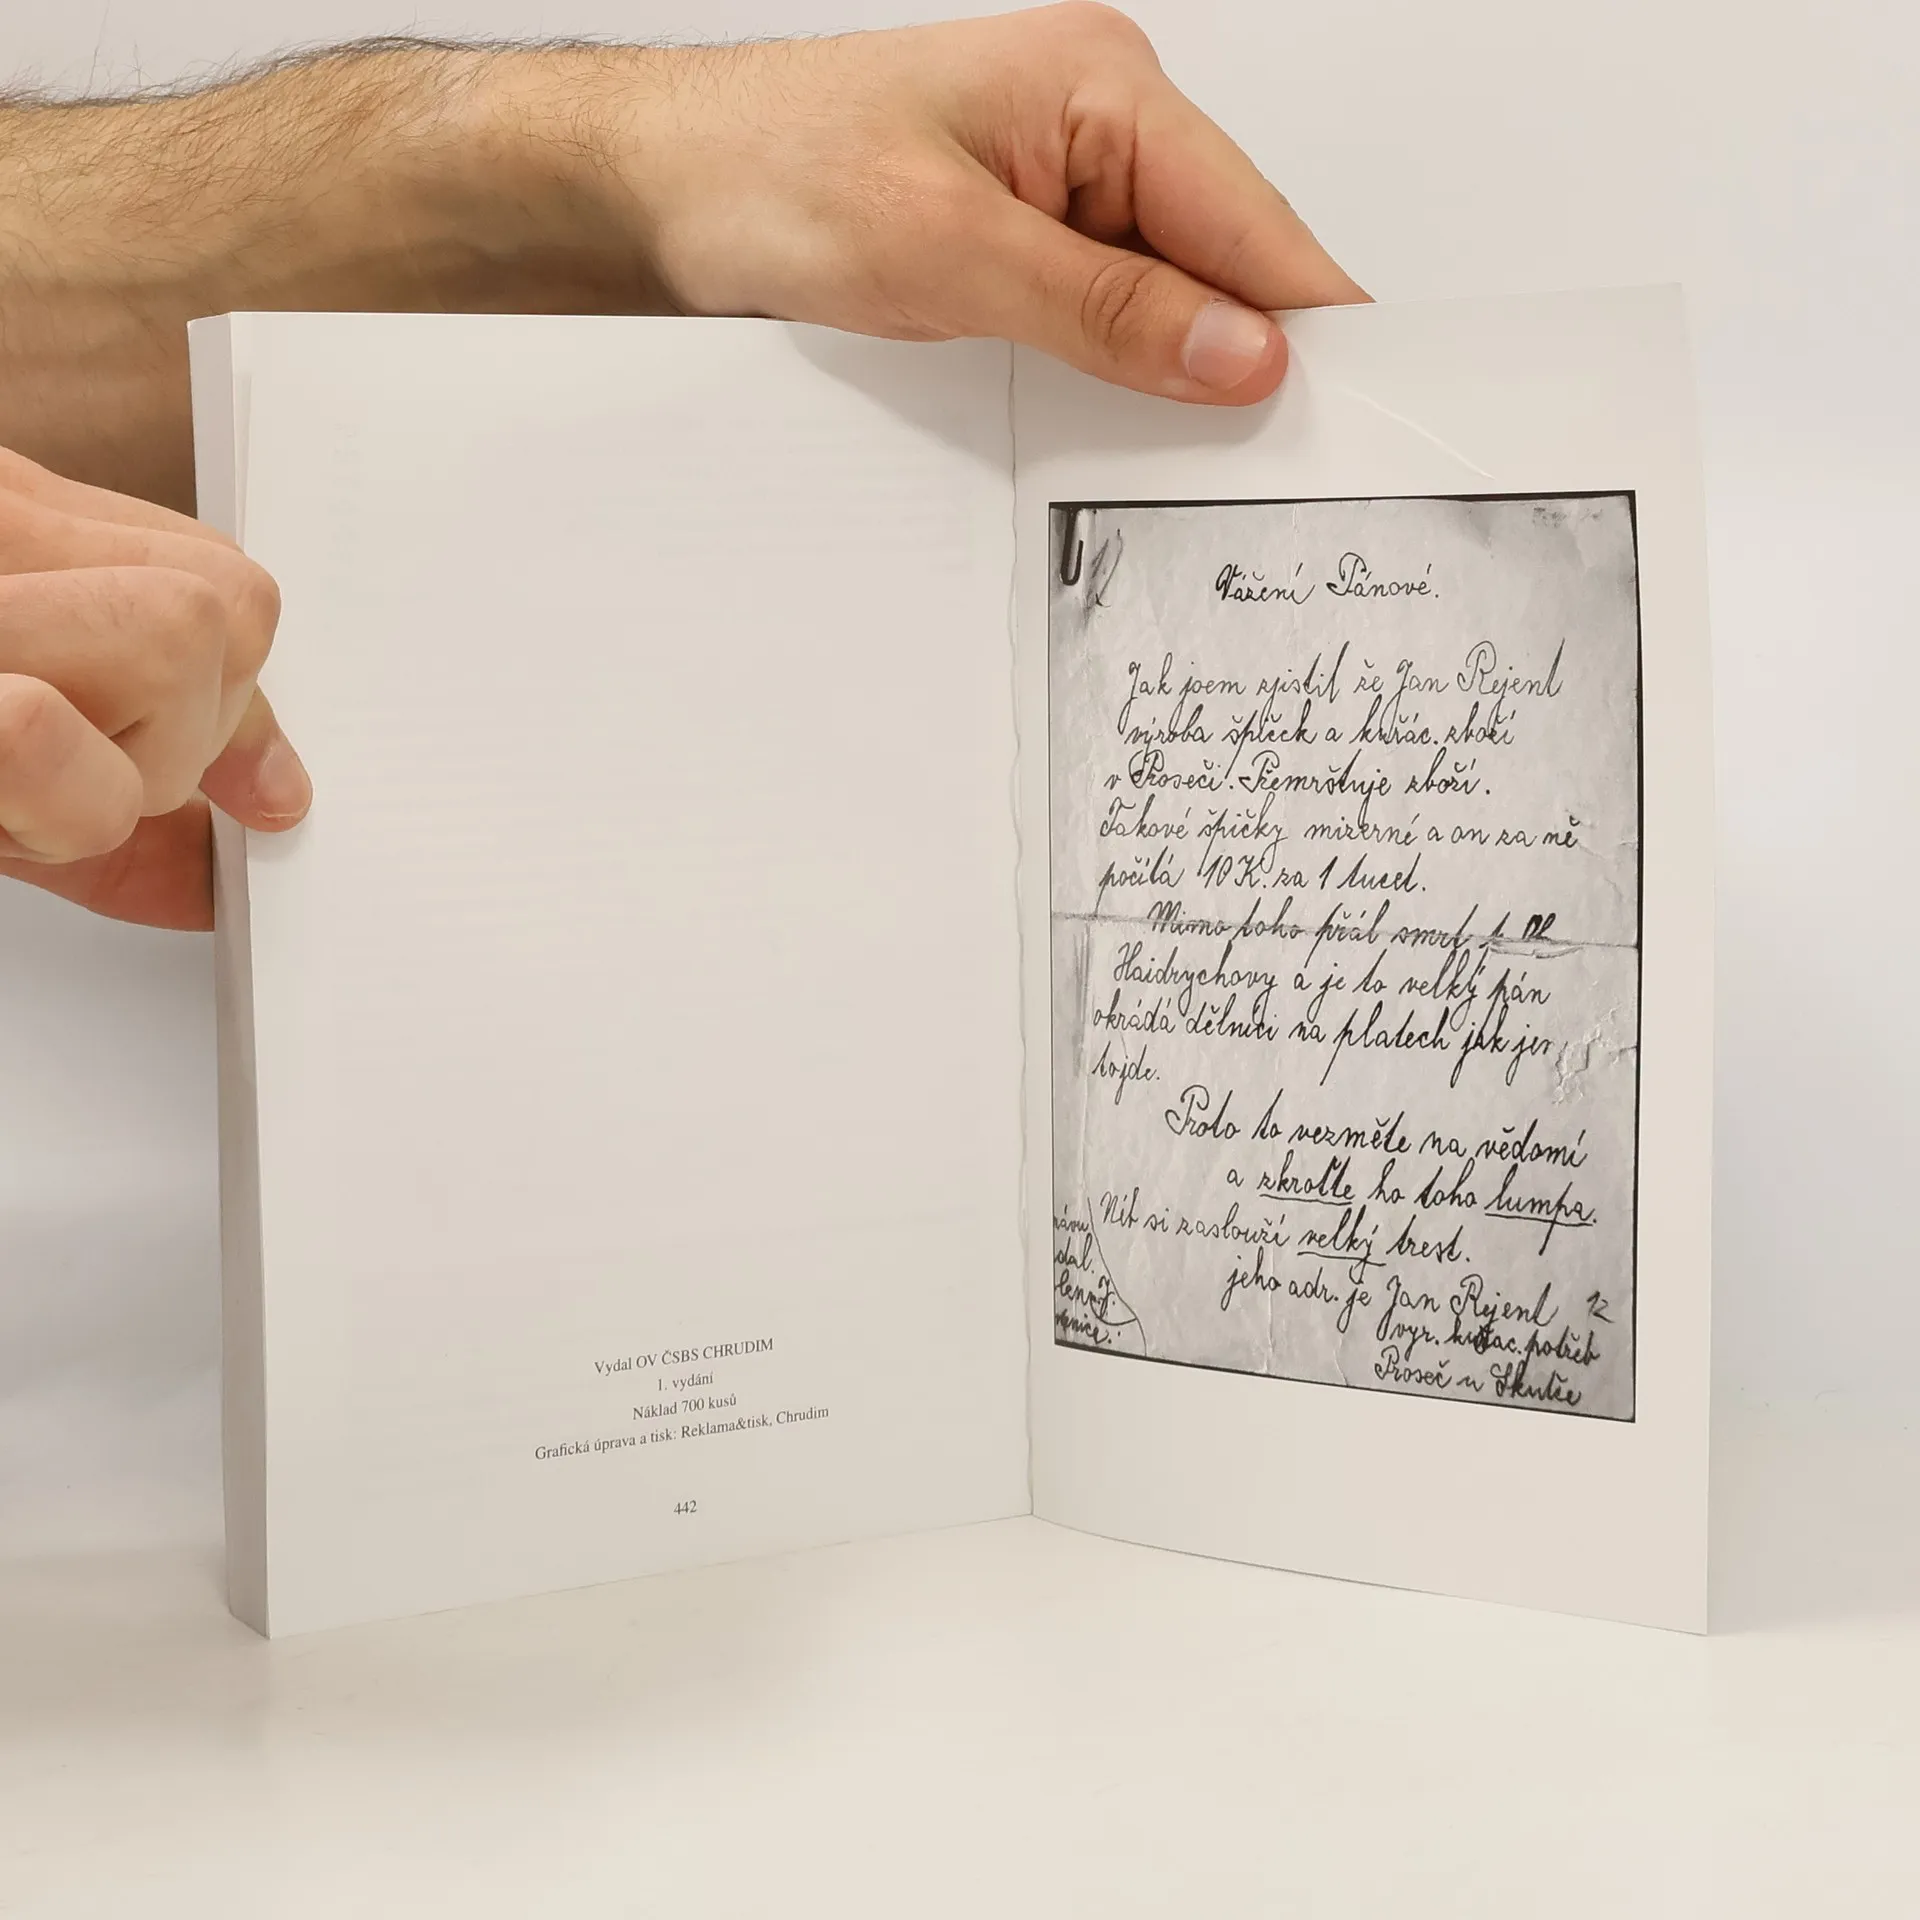 Vydal OV ČSBS CHRUDIM
1. vydání
Náklad 700 kusů
Grafická úprava a tisk: Reklama&tisk, Chrudim
442
Vážení Pánové.
Jak jsem zjistil že Jan Rejent
výroba špiček a kuřác. zboží
v Proseči. Přemrštuje zboží.
Takové špičky mizerné a on za ně
počítá 10 K. za 1 tucet.
Mimo toho přál smrt
Haidrychovy a je to velký pán
okrádá dělníci na platech jak jen
tojde.
Proto to vezměte na vědomí
a zkroťte ho toho lumpa.
Neb si zaslouží velký trest.
jeho adr. je Jan Rejent 12
vyr. kuřac. potřeb
Proseč u Skutče
dal.